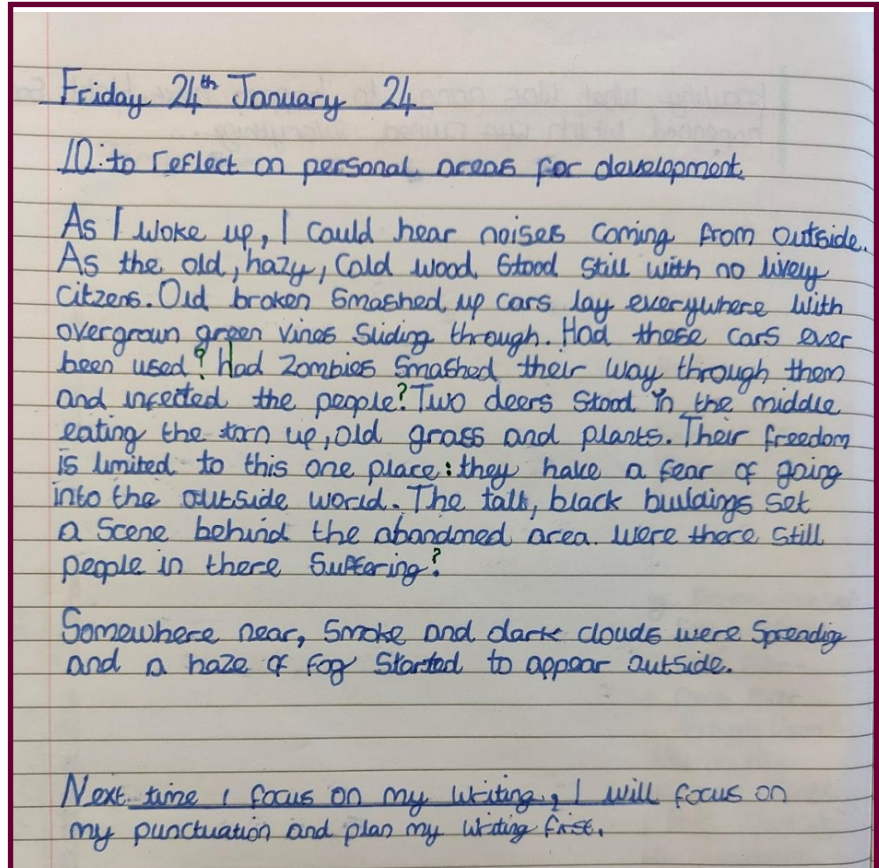 Friday 24th January 24
LO: to reflect on personal areas for development.
As I woke up, I could hear noises coming from outside.
As the old, hazy, cold wood stood still with no lively
citzens. Old broken smashed up cars lay everywhere with
overgrown green vines sliding through. Had these cars ever
been used? Had zombies smashed their way through them
and infected the people? Two deers stood in the middle
eating the torn up, old grass and plants. Their freedom
is limited to this one place: they have a fear of going
into the outside world. The tall, black buildings set
a scene behind the abandoned area. Were there still
people in there suffering?
Somewhere near, smoke and dark clouds were spreading
and a haze of fog started to appear outside.
Next time I focus on my writing, I will focus on
my punctuation and plan my writing first.